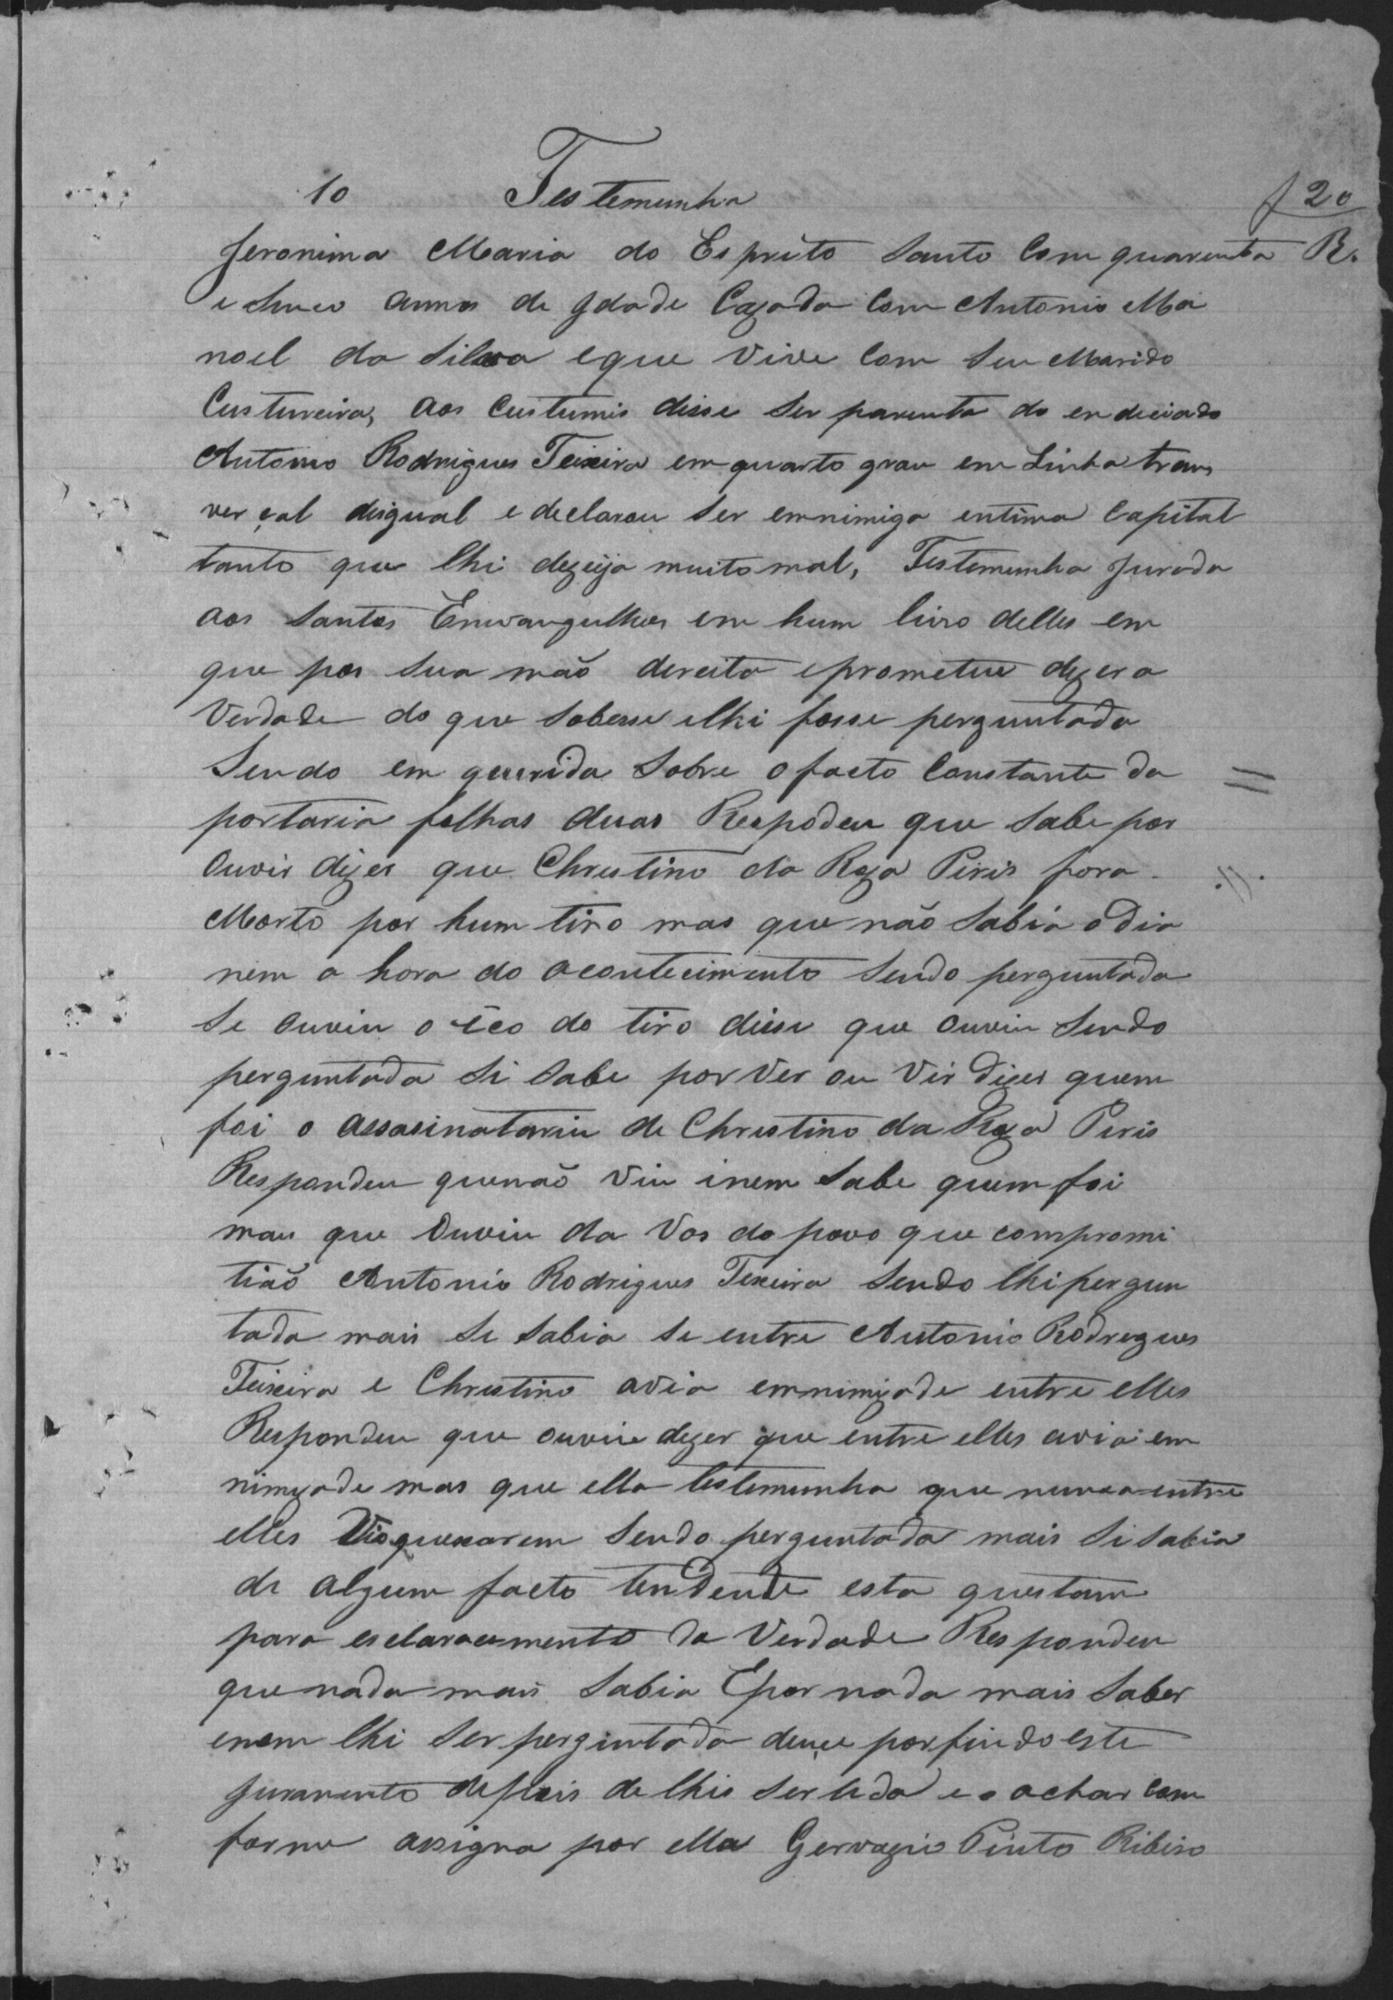 10 Testemunha f 20
Jeronima Maria do Esprito Santo Com quarenta R.
e Sinco annos de Jdade Cazada Com Antonio Ma
noel da Silva e que Vive Com Seu Marido
Custureira, aos Custumis disse Ser parenta do endiciado
Antonio Rodrigues Teixeira em quarto grau em Linha trans
verçal desigual e declarou Ser emnimiga entima Capital
tanto que lhi dezeija muito mal, Testemunha Jurada
aos Santos Envangulhos em hum livro delles em
que pos sua mão dereita e prometeu dizer a
Verdade do que Sobesse e lhi fosse perguntada
Sendo em querida Sobre o facto Constante da
portaria folhas duas Respodeu que Sabe por
Ouvir dizer que Christino da Roza Piris fora
Morto por hum tiro mas que não Sabia o Dia
nem a hora do acontecimento Sendo perguntada
Se Ouviu o Éco do tiro disse que Ouviu Sendo
perguntada Si Sabe por Ver ou Vir dizer quem
foi o assasinatariu de Christino da Roza Piris
Respondeu que não Viu i nem Sabe quem foi
mas que Ouviu da Vos do povo que compromi
tião Antonio Rodrigues Texeira Sendo lhi pergun
tada mais Se Sabia Se entre Antonio Rodregues
Teixeira e Christino avia emnimizade entre elles
Respondeu que ouviu dezer que entre elles avia em
nimizade mas que ella testemunha que nunca entre
elles Vio quexarem Sendo perguntada mais Si Sabia
de algum facto tendente esta questam
para esclaraciemento da Verdade Respondeu
que nada mais Sabia E por nada mais Saber
e nem lhi Ser perguntada deuce por findo este
Juramento depois de lhis Ser lido e o achar Com
forme asigna por ella Gervazio Pinto Ribiro